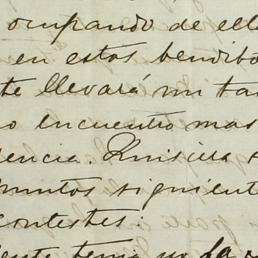 ocupando de ell
en estos bendito
te llevará un ta
o encuentro mas
dencia. Quisiera
puntos siguient
contestes:
ente tenia no la